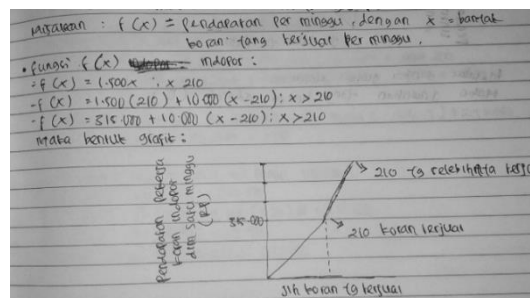 Misalkan : f (x) = pendapatan per minggu, dengan x = banyak
koran yang terjual per minggu.
• Fungsi f (x) Indopos :
- f (x) = 1.500x ; x 210
- f (x) = 1.500 (210) + 10.000 (x - 210) ; x > 210
- f (x) = 315.000 + 10.000 (x - 210) ; x > 210
Maka bentuk grafik :
Pendapatan pekerja
koran Indopos
dlm satu minggu
(Rp)
315.000
210 yg selebihnya
210 koran terjual
Jlh koran yg terjual